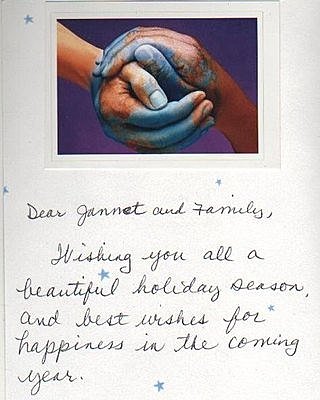 Dear Jannet and Family,
Wishing you all a
beautiful holiday season,
and best wishes for
happiness in the coming
year.